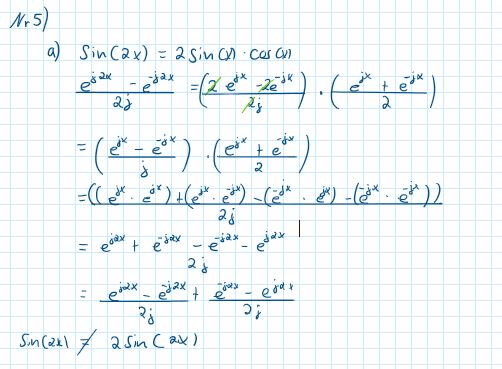 Nr 5)
a) Sin(2x) = 2 Sin(x) · cos(x)
(e^{j2x} - e^{-j2x})/2j = ((2 e^{jx} - 2e^{-jx})/2j) · ((e^{jx} + e^{-jx})/2)
= ((e^{jx} - e^{-jx})/j) · ((e^{jx} + e^{-jx})/2)
= ((e^{jx} · e^{jx}) + (e^{jx} · e^{-jx}) - (e^{-jx} · e^{jx}) - (e^{-jx} · e^{-jx}))/2j
= (e^{j2x} + e^{-j2x} - e^{-j2x} - e^{j2x})/2j
= (e^{j2x} - e^{-j2x})/2j + (e^{-j2x} - e^{j2x})/2j
Sin(2x) ≠ 2 Sin(2x)